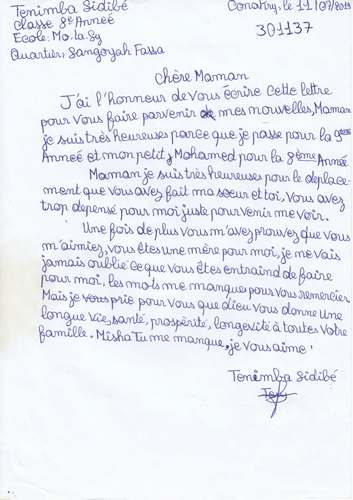 Tenimba Sidibé
Classe 8e Anneé
Ecole: Mo.la.Sy
Quartier, Sangoyah Fassa
Conakry, le 11/07/2019
301137
Chère Maman
J'ai l'honneur de vous écrire cette lettre
pour vous faire parvenir de mes nouvelles, Maman
je suis très heureuses parce que je passe pour la 9eme
Anneé et mon petit, Mohamed pour la 8ème Année
Maman je suis très heureuses pour le deplace-
ment que vous avez fait ma sœur et toi, vous avez
trop depensé pour moi juste pour venir me voir.
Une fois de plus vous m'avez prouvez que vous
m'aimiez, vous êtes une mère pour moi, je ne vais
jamais oublié ce que vous êtes entraind de faire
pour moi, les mots me manque pour vous remercier.
Mais je vous prie pour vous que dieu vous donne une
longue vie, santé, prospèrité, longevité à toutes votre
famille. Misha Tu me manque, je vous aime!
Tenimba Sidibé